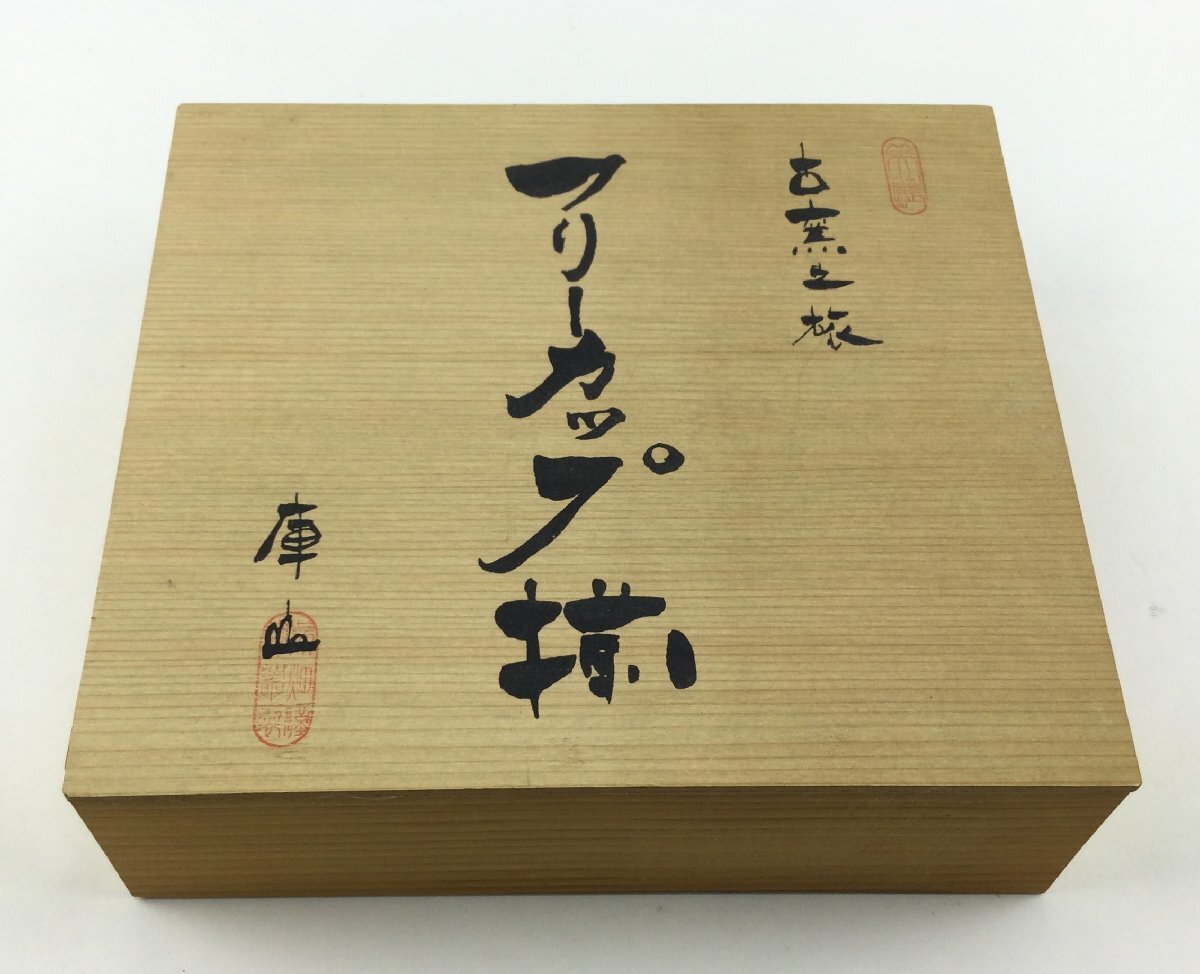 古窯之旅
フリーカップ揃
庫山